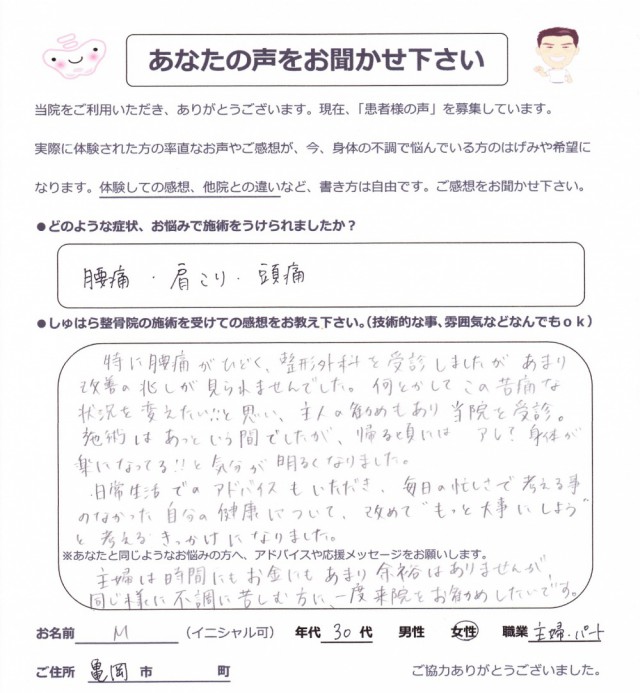 あなたの声をお聞かせ下さい
当院をご利用いただき、ありがとうございます。現在、「患者様の声」を募集しています。
実際に体験された方の率直なお声やご感想が、今、身体の不調で悩んでいる方のはげみや希望に
なります。体験しての感想、他院との違いなど、書き方は自由です。ご感想をお聞かせ下さい。
●どのような症状、お悩みで施術をうけられましたか？
腰痛・肩こり・頭痛
●しゅはら整骨院の施術を受けての感想をお教え下さい。（技術的な事、雰囲気などなんでもｏｋ）
特に腰痛がひどく、整形外科を受診しましたが あまり
改善の兆しが見られませんでした。何とかしてこの苦痛な
状況を変えたい!!と思い、主人の勧めもあり当院を受診。
施術はあっという間でしたが、帰る頃には アレ？身体が
楽になってる!!と気分が明るくなりました。
日常生活でのアドバイスもいただき、毎日の忙しさで考える事
のなかった自分の健康について、改めて"もっと大事にしよう"
と考えるきっかけになりました。
※あなたと同じようなお悩みの方へ、アドバイスや応援メッセージをお願いします。
主婦は時間にもお金にもあまり余裕はありませんが、
同じ様に不調に苦しむ方に、一度来院をお勧めしたいです。
お名前 M （イニシャル可） 年代 30 代 男性 女性 職業 主婦・パート
ご住所 亀岡 市 町 ご協力ありがとうございました。